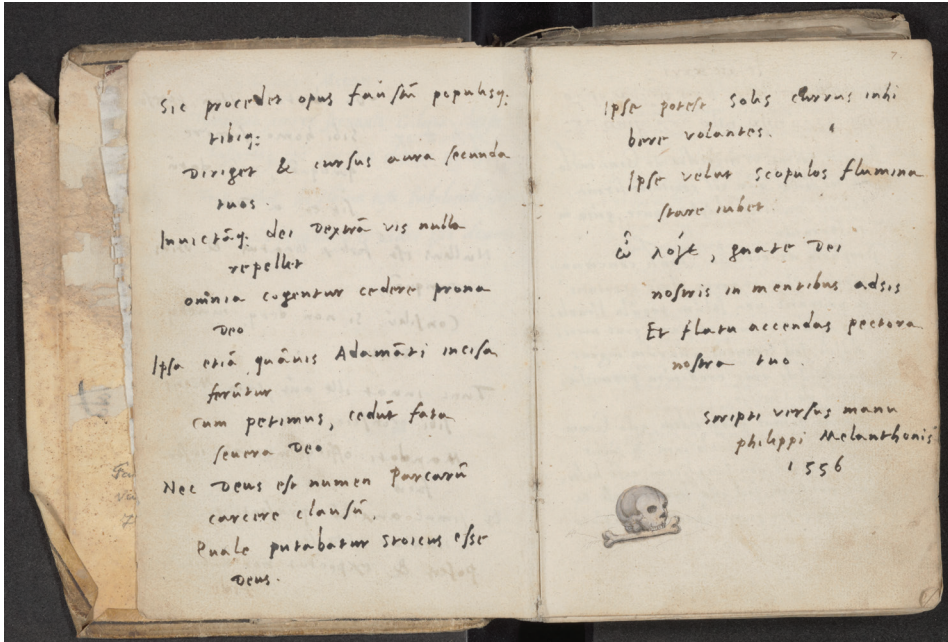 Sic procedet opus faustū populisq;
tibiq;
Diriget & cursus aura secunda
tuos.
Inuictāq; dei dextrā vis nulla
repellet
omnia cogentur cedere prona
Deo
Ipsa etiā quāuis Adamāti incisa
ferūtur
cum petimus, cedūt fata
seuera Deo
Nec Deus est numen Parcarū
carcere clausū.
Quale putabatur Stoicus esse
Deus.
7.
Ipse potest Solis currus inhi
bere volantes.
Ipse velut scopulos flumina
stare iubet.
ὦ λόγε, gnate Dei
nostris in mentibus adsis
Et flatu accendas pectora
nostra tuo.
Scripti versus manu
philippi Melanthonis
1556